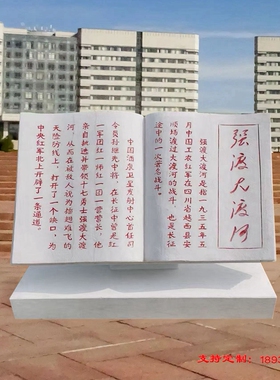 强渡大渡河
强渡大渡河是指一九三五年五
月中国工农红军在四川省越西县安
顺场渡过大渡河的战斗，也是长征
途中的一次著名战斗。
中国酒泉卫星发射中心首任司
令员孙继先中将，在长征中曾是红
一军团红一师红一团一营营长，他
亲自挑选并带领十七勇士强渡大渡
河，从而在被敌人视为插翅难飞的
天险防线上，打开了一个缺口，为
中央红军北上开辟了一条通道。
支持定制：1893